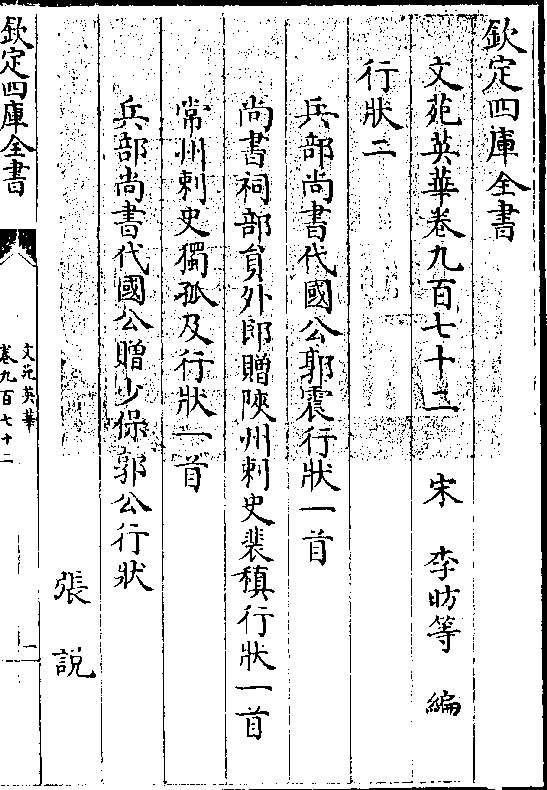 欽定四庫全書
文苑英華卷九百七十二　宋　李昉等　編
行狀二
兵部尚書代國公郭震行狀一首
尚書祠部員外郎贈陝州刺史裴稹行狀一首
常州刺史獨孤及行狀一首
兵部尚書代國公贈少保郭公行狀
張說
欽定四庫全書
文苑英華
卷九百七十二
一